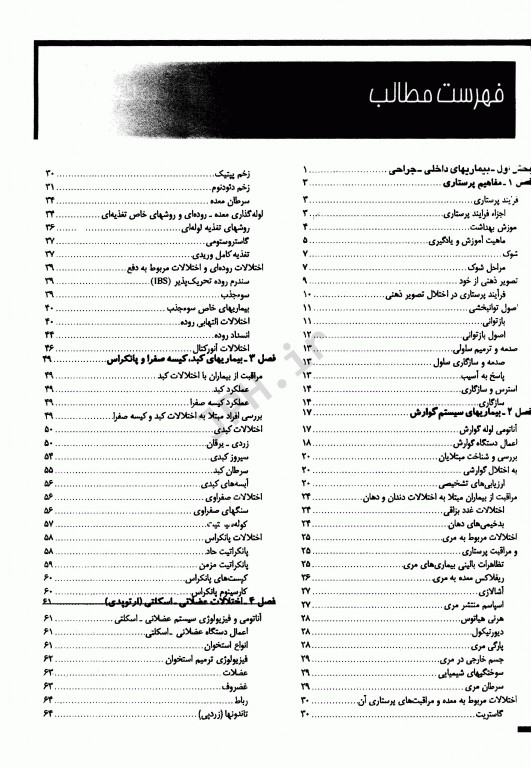 فهرست مطالب
بخش اول ـ بیماریهای داخلی ـ جراحی ۱
فصل ۱ ـ مفاهیم پرستاری ۳
فرآیند پرستاری ۳
اجزاء فرایند پرستاری ۳
موزش بهداشت ۴
ماهیت آموزش و یادگیری ۵
شوک ۷
مراحل شوک ۷
تصویر ذهنی از خود ۹
فرآیند پرستاری در اختلال تصویر ذهنی ۱۰
صول توانبخشی ۱۱
بازتوانی ۱۱
اصول بازتوانی ۱۲
صدمه و ترمیم سلولی ۱۳
صدمه و سازگاری سلول ۱۳
پاسخ به آسیب ۱۳
استرس و سازگاری ۱۴
سازگاری ۱۴
فصل ۲ ـ بیماریهای سیستم گوارش ۱۷
آناتومی لوله گوارش ۱۷
اعمال دستگاه گوارش ۱۸
بررسی و شناخت مبتلایان ۲۰
به اختلال گوارشی ۲۰
ارزیابی‌های تشخیصی ۲۰
مراقبت از بیماران مبتلا به اختلالات دندان و دهان ۲۴
اختلالات غدد بزاقی ۲۴
بدخیمی‌های دهان ۲۴
اختلالات مربوط به مری ۲۵
و مراقبت پرستاری ۲۵
تظاهرات بالینی بیماری‌های مری ۲۵
ریفلاکس معده به مری ۲۶
آشالازی ۲۷
اسپاسم منتشر مری ۲۷
هرنی هیاتوس ۲۸
دیورتیکول ۲۸
پارگی مری ۲۸
جسم خارجی در مری ۲۹
سوختگیهای شیمیایی ۲۹
سرطان مری ۲۹
اختلالات مربوط به معده و مراقبت‌های پرستاری آن ۳۰
گاستریت ۳۰
زخم پپتیک ۳۰
زخم دئودنوم ۳۱
سرطان معده ۳۴
لوله‌گذاری معده ـ روده‌ای و روشهای خاص تغذیه‌ای ۳۴
روشهای تغذیه لوله‌ای ۳۶
گاستروستومی ۳۷
تغذیه کامل وریدی ۳۷
اختلالات روده‌ای و اختلالات مربوط به دفع ۳۹
سندرم روده تحریک‌پذیر (IBS) ۳۹
سوءجذب ۳۹
بیماریهای خاص سوءجذب ۴۰
اختلالات التهابی روده ۴۰
انسداد روده ۴۴
اختلالات آنورکتال ۴۶
فصل ۳ ـ بیماریهای کبد، کیسه صفرا و پانکراس ۴۹
مراقبت از بیماران با اختلالات کبد ۴۹
عملکرد کبد ۴۹
عملکرد کیسه صفرا ۴۹
بررسی افراد مبتلا به اختلالات کبد و کیسه صفرا ۴۹
اختلالات کبدی ۵۰
زردی ـ یرقان ۵۰
سیروز کبدی ۵۴
سرطان کبد ۵۵
آبسه‌های کبدی ۵۶
اختلالات صفراوی ۵۶
سنگهای صفراوی ۵۶
کوله‌سیستیت ۵۷
اختلالات پانکراس ۵۸
پانکراتیت حاد ۵۸
پانکراتیت مزمن ۵۹
کیست‌های پانکراس ۶۰
کارسینوم پانکراس ۶۰
فصل ۴ ـ اختلالات عضلانی ـ اسکلتی (ارتوپدی) ۶۱
آناتومی و فیزیولوژی سیستم عضلانی ـ اسکلتی ۶۱
اعمال دستگاه عضلانی ـ اسکلتی ۶۱
انواع استخوان ۶۱
فیزیولوژی ترمیم استخوان ۶۲
عضلات ۶۳
غضروف ۶۳
رباط ۶۴
تاندونها (زردپی) ۶۴